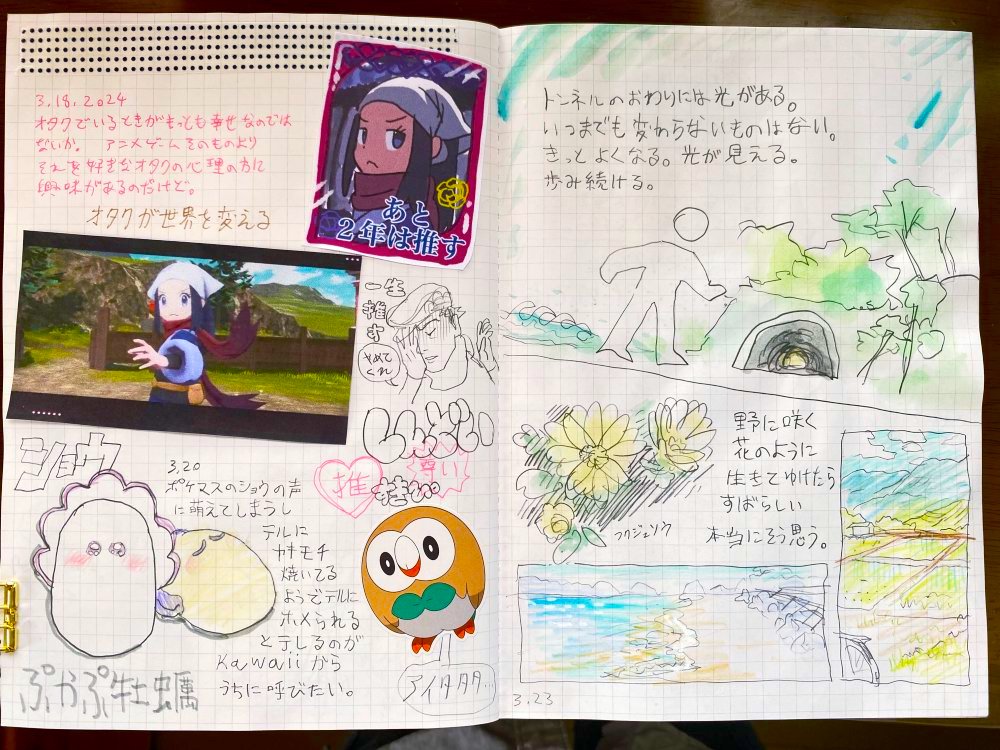 3.18.2024
オタクでいるときがもっとも幸せなのでは
ないか。 アニメゲームそのものより
それを好きなオタクの心理の方に
興味があるのだけど。
オタクが世界を変える
あと
2年は推す
一生
推す
やめて
くれ
しんどい
尊い
推
ショウ
3.20
ポケマスのショウの声
に萌えてしまうし
テルに
ヤキモチ
焼いてる
ようでテルに
ホメられる
とテレるのが
Kawaiiから
うちに呼びたい。
ぷかぷ牡蠣
アイタタタ…
トンネルのおわりには光がある。
いつまでも変わらないものはない。
きっとよくなる。光が見える。
歩み続ける。
野に咲く
花のように
生きてゆけたら
すばらしい
本当にそう思う。
フクジュソウ
3.23